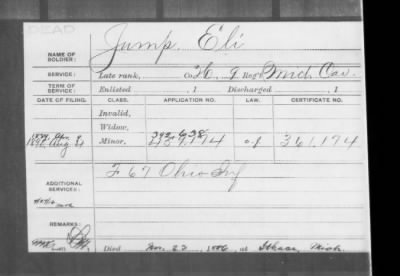 DEAD
NAME OF SOLDIER: Jump, Eli
SERVICE: Late rank, Co. H, 9 Reg't Mich. Cav.
TERM OF SERVICE: Enlisted , 1 Discharged , 1
DATE OF FILING. CLASS. APPLICATION NO. LAW. CERTIFICATE NO.
Invalid,
Widow,
Aug Minor, 361,174
ADDITIONAL SERVICES: F 67 Ohio Inf
REMARKS:
Died Nov. 22, 1886, at Ithaca, Mich.